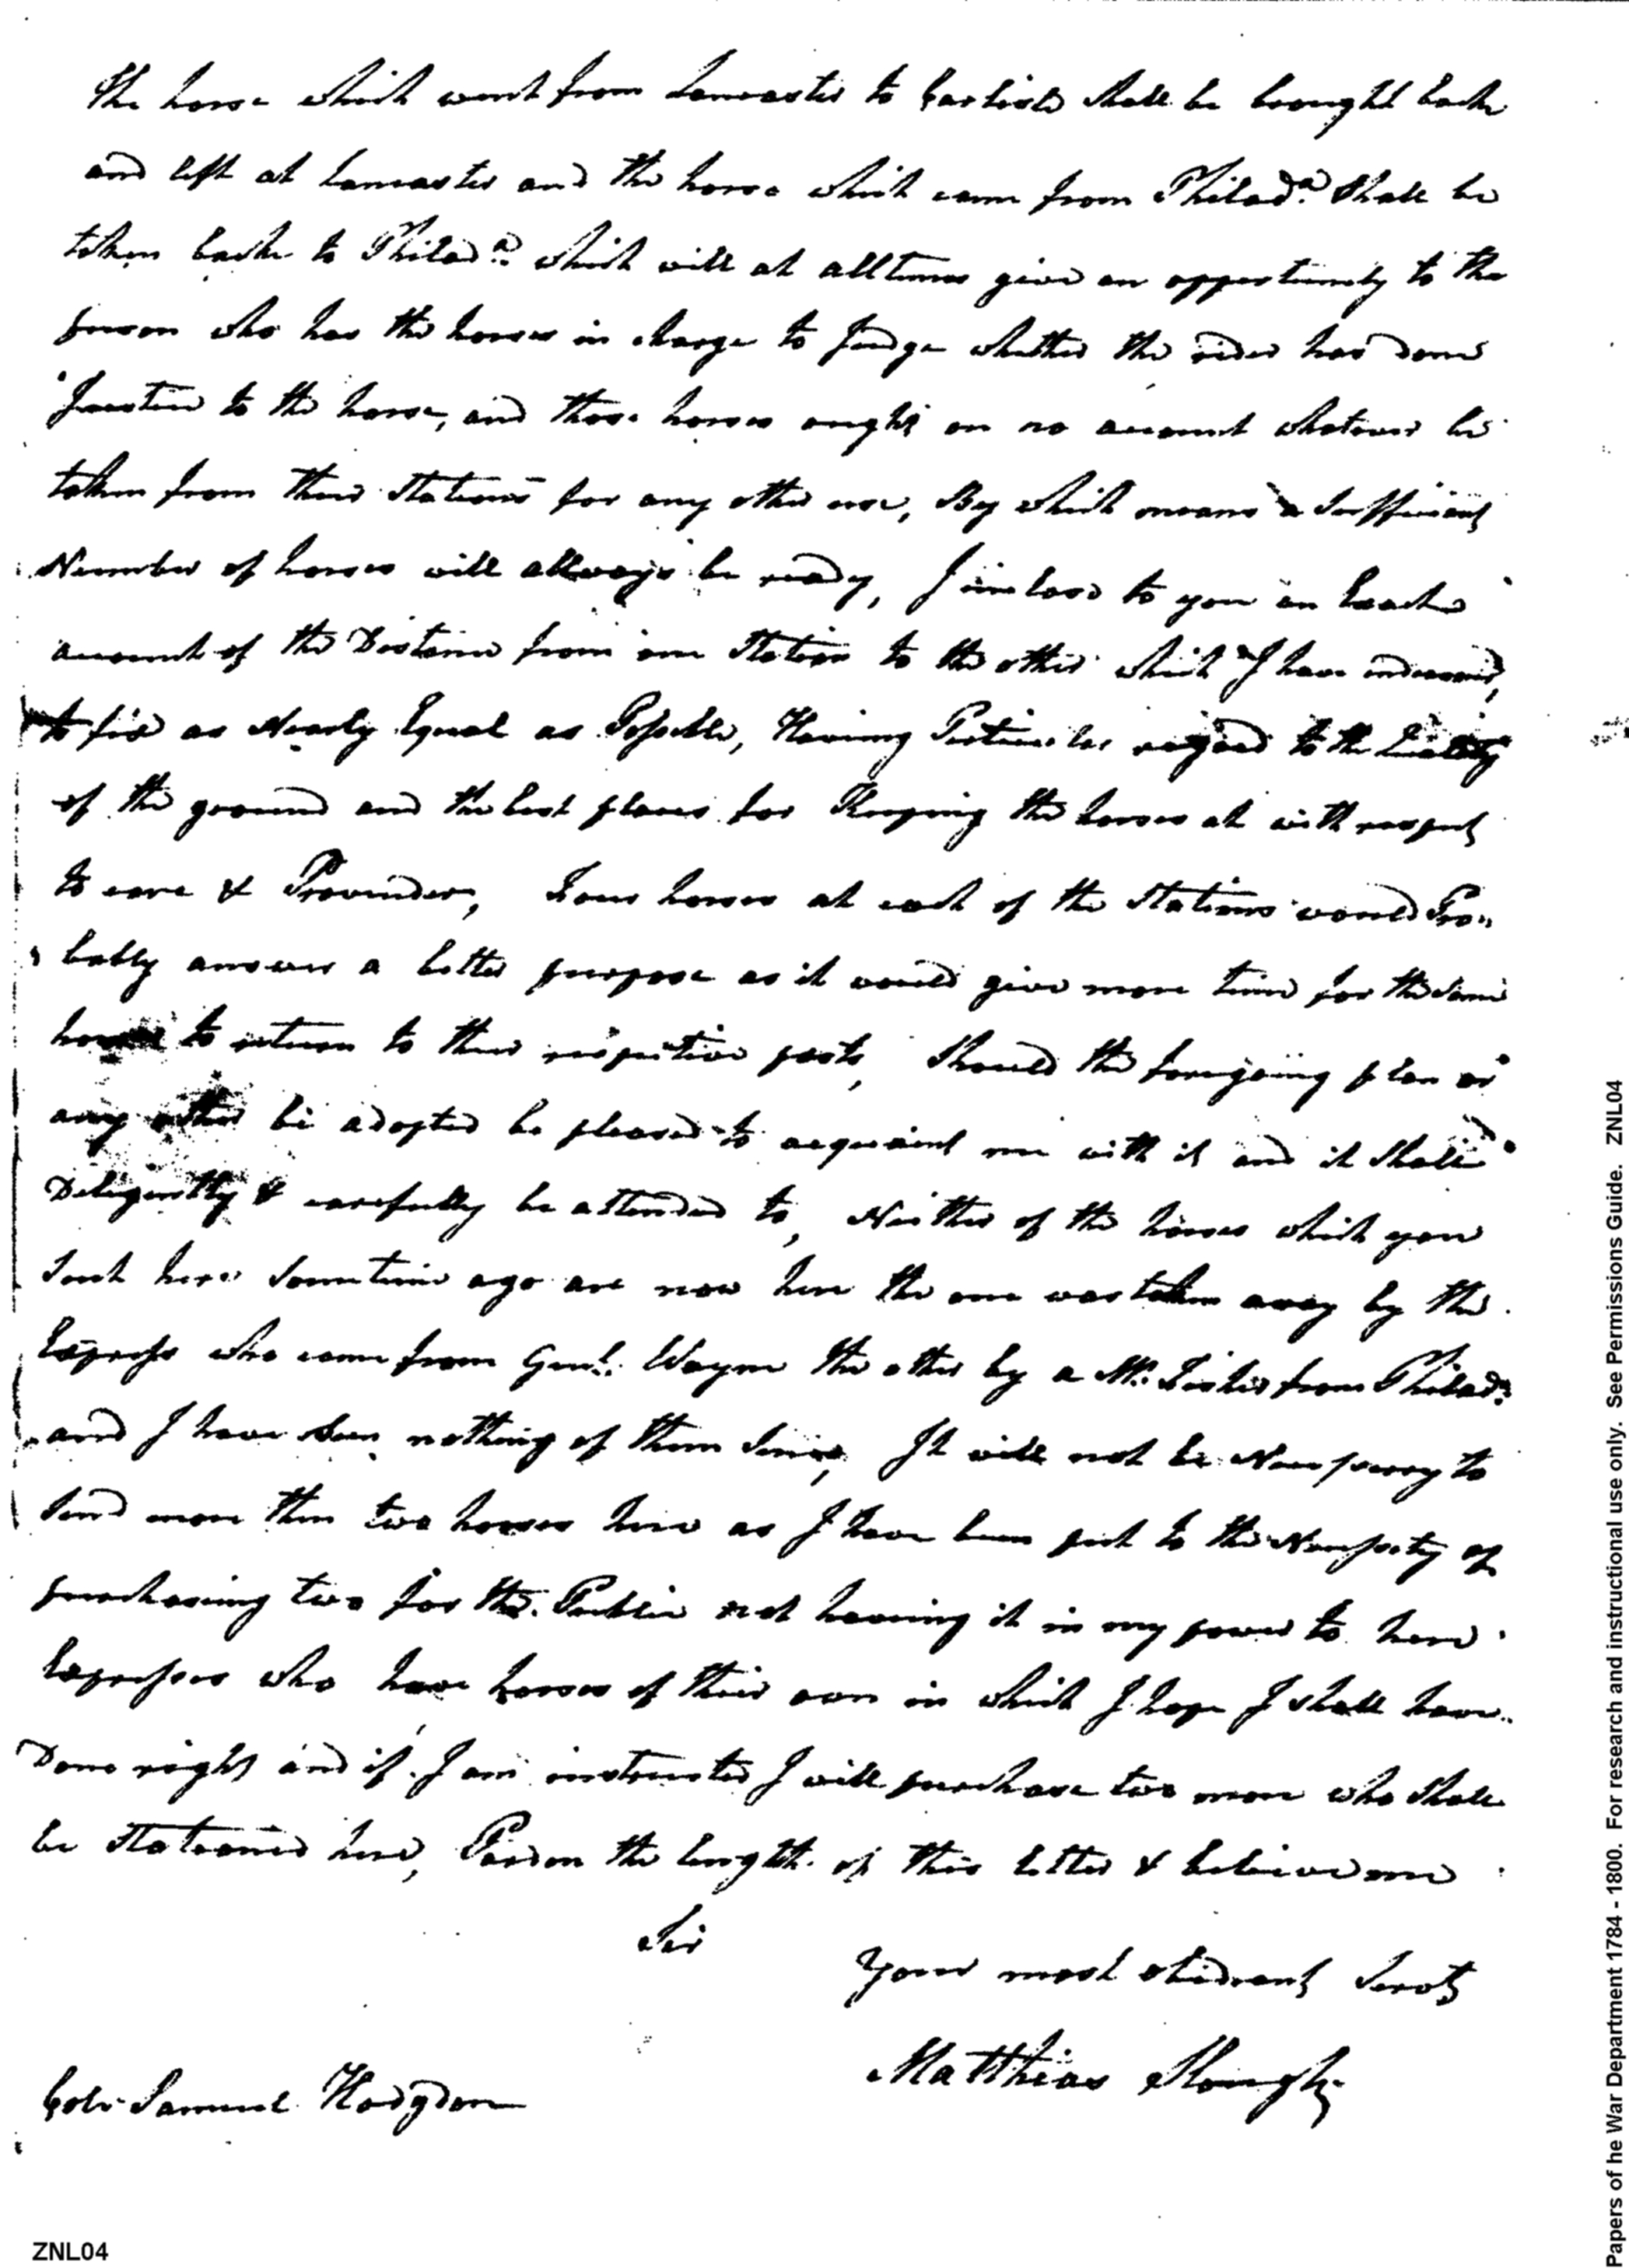 the horse which went from Lancaster to Carlisle shall be brought back
and left at Lancaster and the horse which came from Philad.a shall be
taken back to Philad.a which will at all times give an opportunity to the
person who has the horses in charge to Judge whether the rider has done
Justice to the horse, and those horses ought on no account whatever be
taken from their stations for any other use, By which means a Sufficient
Number of horses will allways be ready, I inclose to you an Exact
account of the Distance from one Station to the other which I have
to fix as Nearly Equal as Possible, Having Particular regard to the Quality
of the ground and the best places for Keeping the horses at with respect
to care & Provinder, Four horses at each of the Stations would Pro"
"bably answer a better purpose as it would give more time for the same
horses to return to their respective posts, Should the foregoing plan or
any other be adopted be pleased to acquaint me with it and it shall
Deligently & carefully be attended to, Neither of the horses which you
sent here sometime ago are now here the one was taken away by the
Express who came from Genl. Wayne the other by a Mr. from Philad.a
and I have seen nothing of them Since, It will not be Necessary to
send more then two horses here as I have been put to the Necessity of
purchasing two for the Public not having it in my power to here
Expresses who have horses of their own in which I hope I shall have
Done right and if I am instructed I will purchase two more who shall
be stationed here, Pardon the length of this letter & believe me
Sir
Your most obedient Servt
Matthias Slough
Colo. Samuel Hodgdon
ZNL04
Papers of he War Department 1784 - 1800. For research and instructional use only. See Permissions Guide. ZNL04